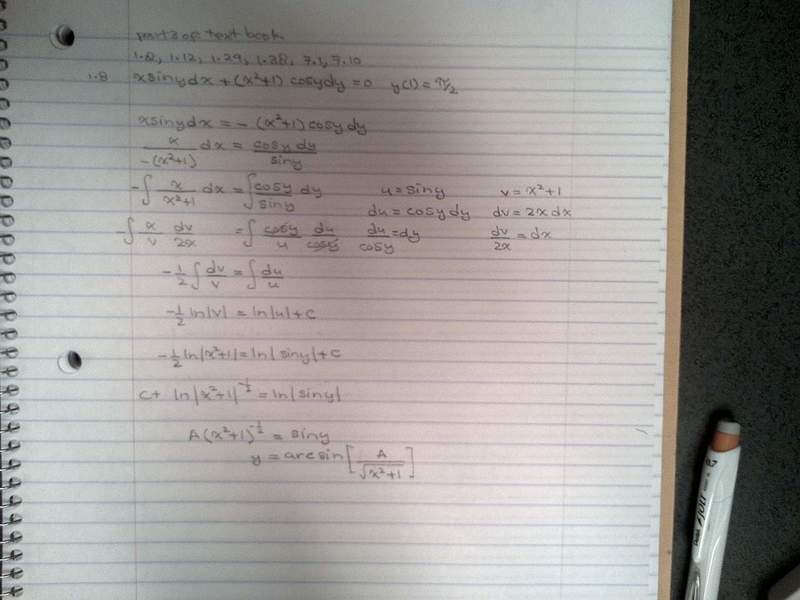 parts of text book
1.8, 1.12, 1.29, 1.38, 7.1, 7.10
1.8 xsinydx + (x²+1) cosydy = 0 y(1) = π/2
xsinydx = - (x²+1) cosydy
x/-(x²+1) dx = cosy dy/siny
-∫ x/x²+1 dx = ∫ cosy/siny dy u = siny v = x²+1
du = cosydy dv = 2xdx
-∫ x/v dv/2x = ∫ cosy/u du/cosy du/cosy = dy dv/2x = dx
-1/2 ∫ dv/v = ∫ du/u
-1/2 ln|v| = ln|u| + c
-1/2 ln|x²+1| = ln|siny| + c
c + ln|x²+1|^-1/2 = ln|siny|
A(x²+1)^-1/2 = siny
y = arcsin[A/√x²+1]